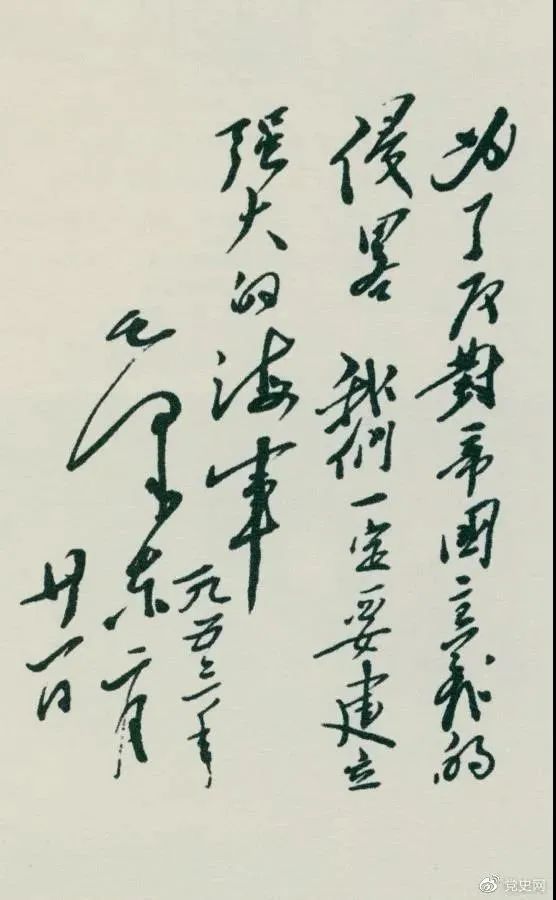 为了反對帝国主義的
侵畧 我們一定要建立
强大的海軍
毛澤东
一九五三年
二月
廿一日
党史网